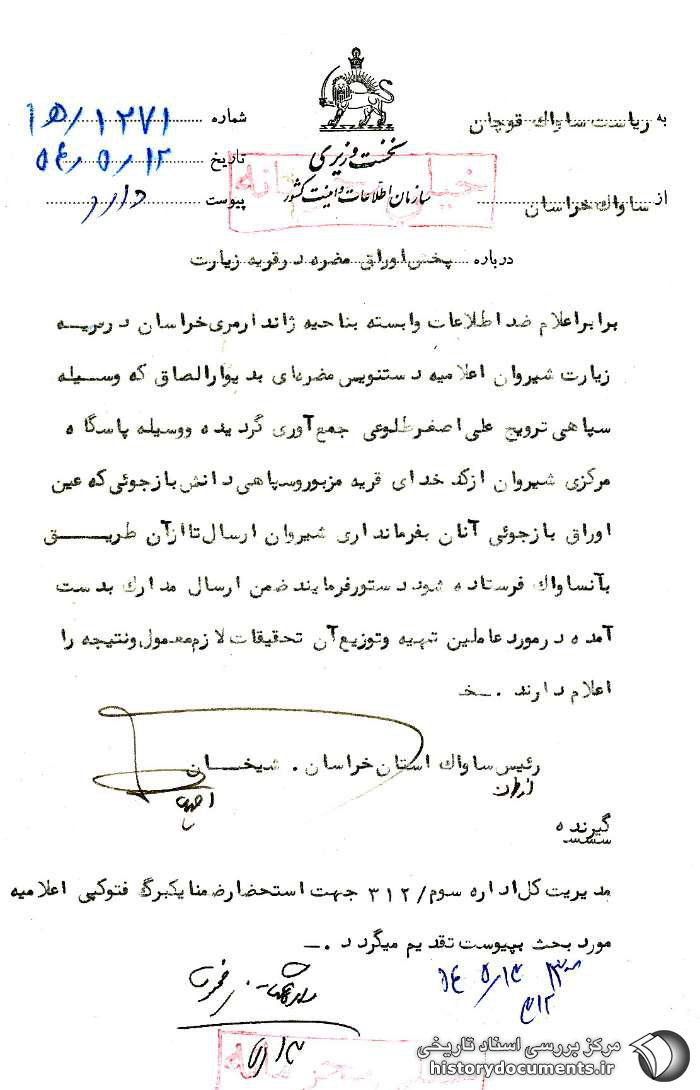 نخست وزیری
سازمان اطلاعات و امنیت کشور
خیلی محرمانه
به ریاست ساواک قوچان
از ساواک خراسان
شماره ۱۲۷۱/۵ه۱
تاریخ ۵۴/۵/۱۲
پیوست دارد
درباره پخش اوراق مضره در قریه زیارت
برابر اعلام ضد اطلاعات وابسته بناحیه ژاندارمری خراسان در قریه
زیارت شیروان اعلامیه دستنویس مضره‌ای بدیوار الصاق که وسیله
سپاهی ترویج علی اصغر طلوعی جمع‌آوری گردیده و وسیله پاسگاه
مرکزی شیروان از کدخدای قریه مزبور و سپاهی دانش بازجوئی که عین
اوراق بازجوئی آنان بفرمانداری شیروان ارسال تا از آن طریق
بآنساواک فرستاده شود دستور فرمایند ضمن ارسال مدارک بدست
آمده در مورد عاملین تهیه و توزیع آن تحقیقات لازم معمول و نتیجه را
اعلام دارند . ـ خ
رئیس ساواک استان خراسان . شیخان
گیرنده
مدیریت کل اداره سوم/۳۱۲ جهت استحضار ضمنا یکبرگ فتوکپی اعلامیه
مورد بحث بپیوست تقدیم میگردد . ـ
۵۴/۵/۱۳
۳۱۲
خیلی محرمانه
مرکز بررسی اسناد تاریخی
historydocuments.ir